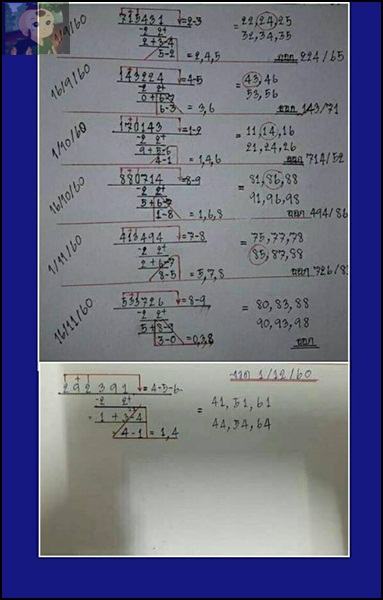 1/9/60
715431 = 2-3 = 22,24,25
-2 2+ 32,34,35
2+3-4
5-2 = 2,4,5 ออก 224/65
16/9/60
143224 = 4-5 = 43,46
-2 2+ 53,56
0+6-7
6-3 = 3,6 ออก 143/71
1/10/60
170143 = 1-2 11,14,16
-2 2+ = 21,24,26
9+5-6
4-1 = 1,4,6 ออก 714/52
16/10/60
880714 = 8-9 81,86,88
-2 2+ = 91,96,98
5+6-7
1-8 = 1,6,8 ออก 494/86
1/11/60
413494 = 7-8 = 75,77,78
-2 2+ 85,87,88
2+6-7
8-5 = 5,7,8 ออก 726/8
16/11/60
533726 = 8-9 = 80,83,88
-2 2+ 90,93,98
5+8-9
3-0 = 0,3,8 ออก
ออก 1/12/60
292391 = 4-5-6
-2 2+ = 41,51,61
= 1+3-4 44,54,64
4-1 = 1,4